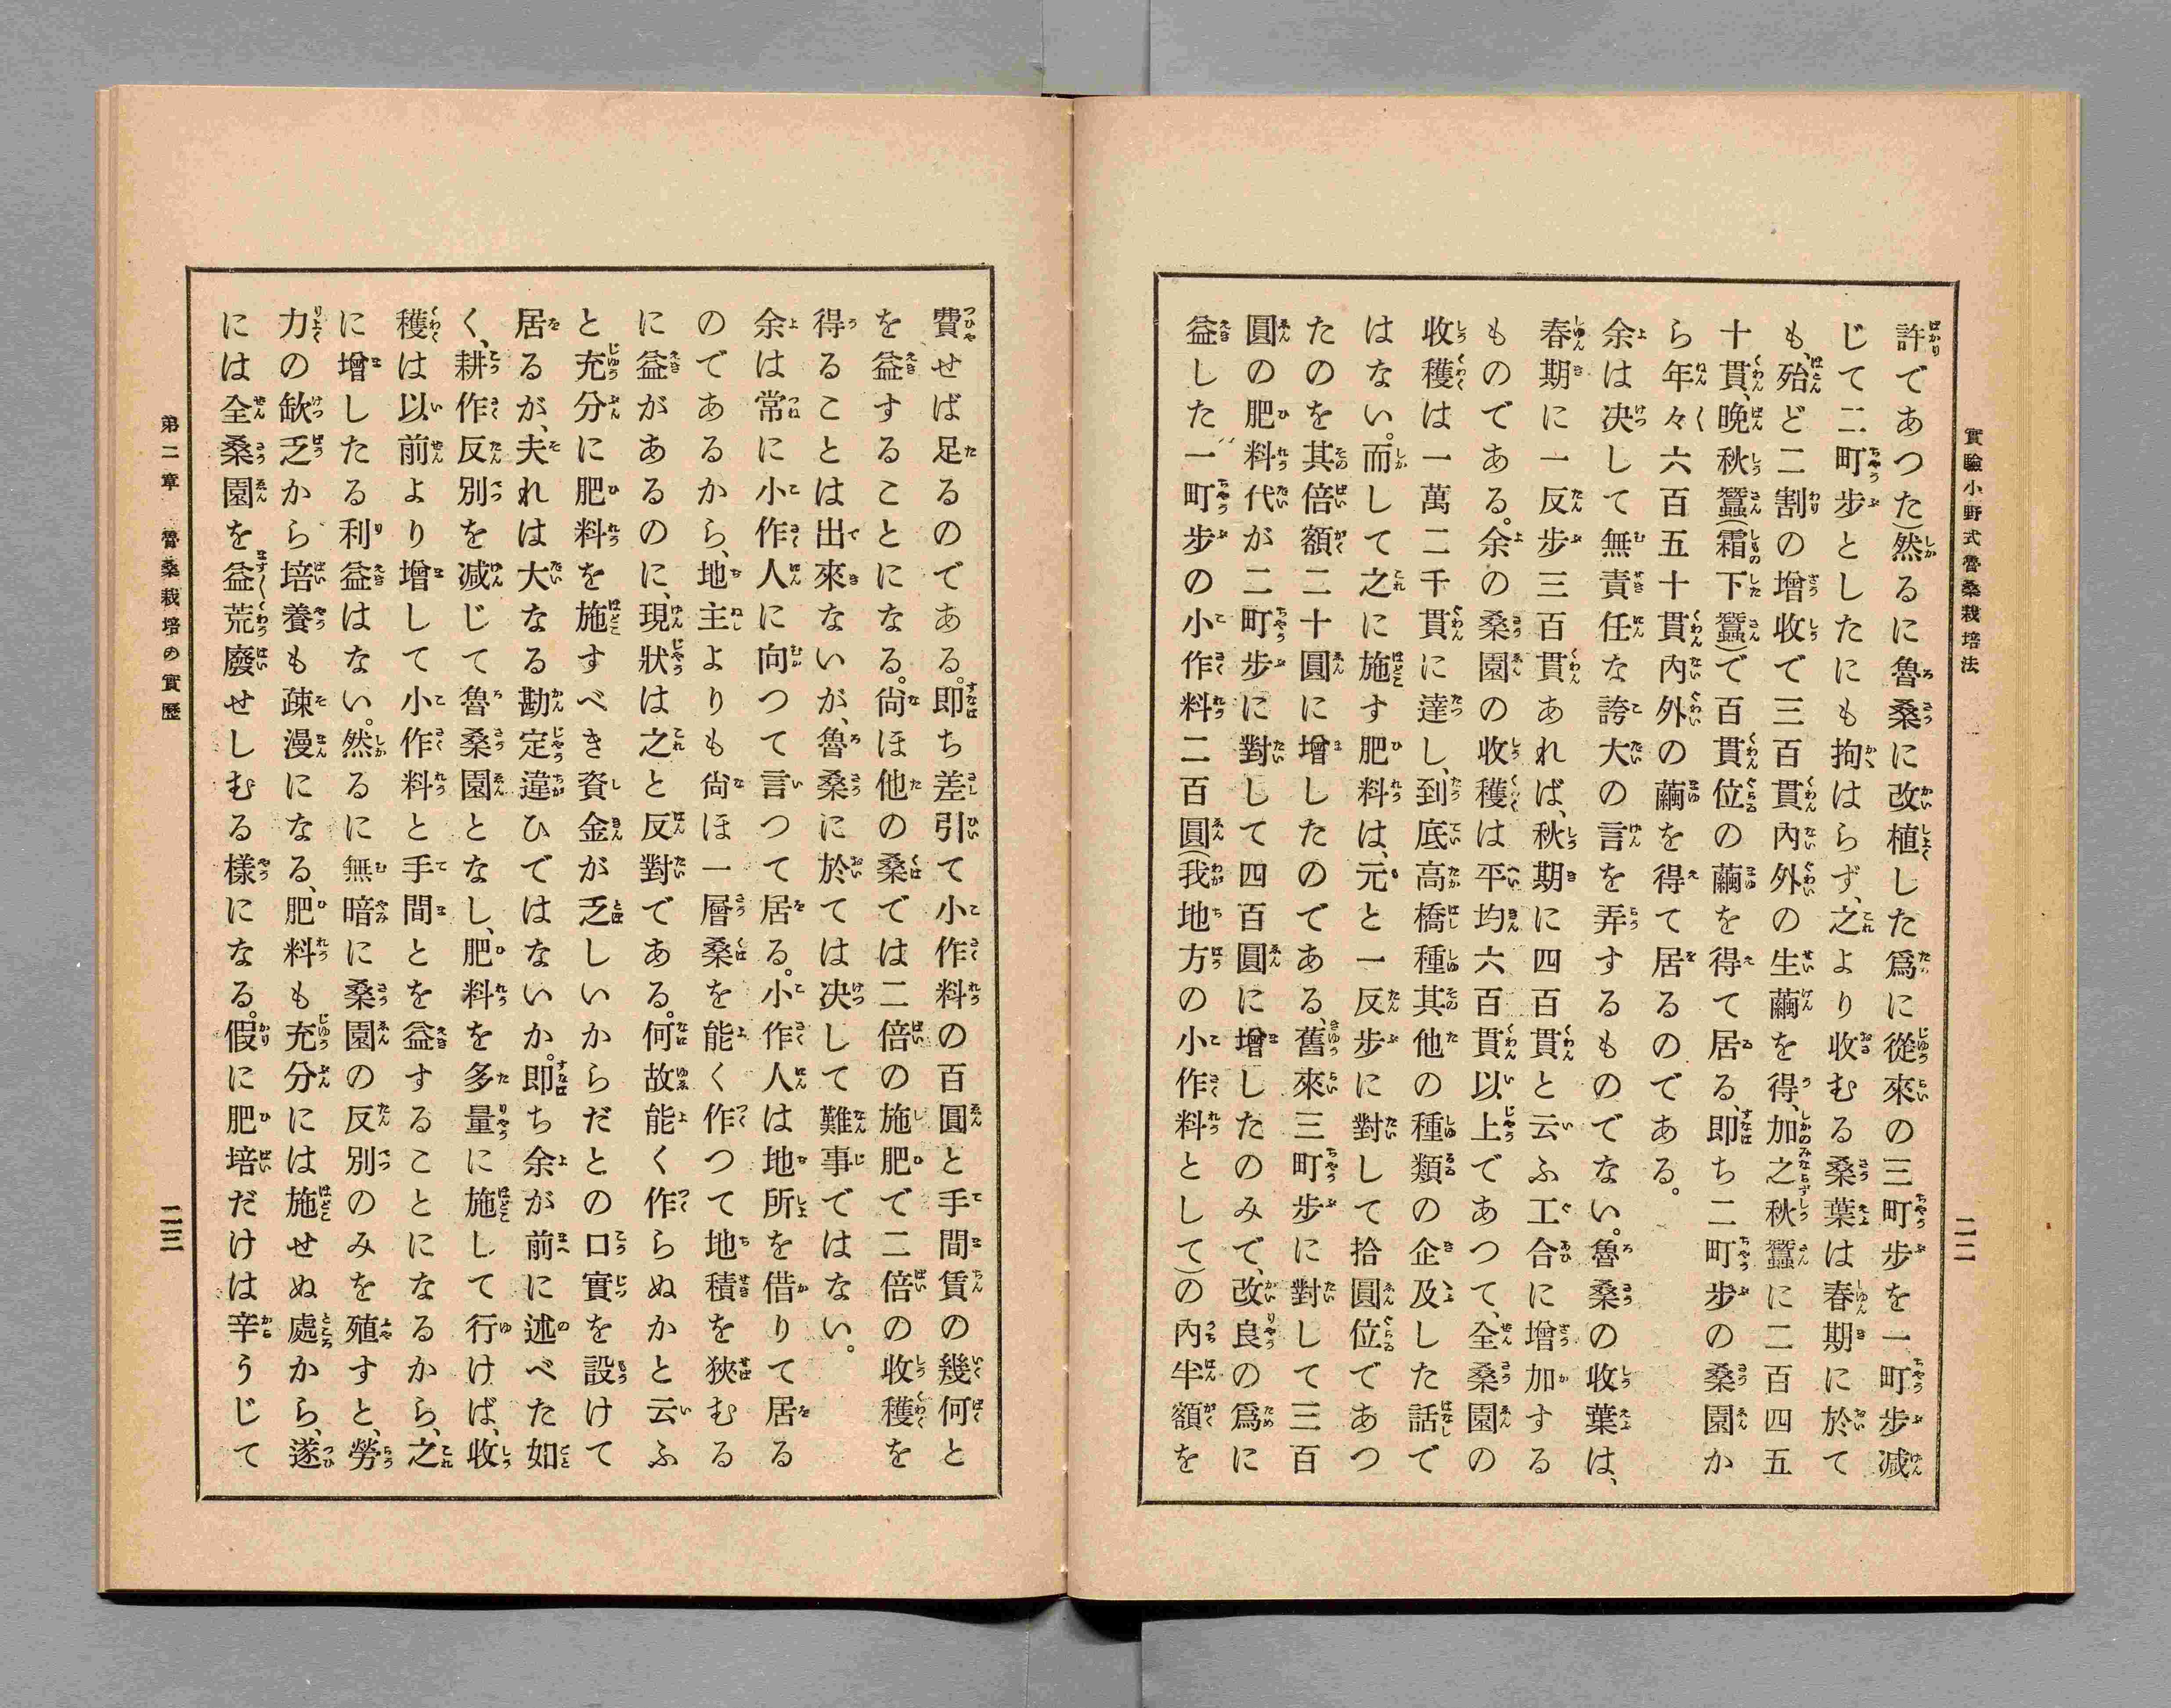 實驗小野式魯桑栽培法
二二
許であつた)然るに魯桑に改植した爲に從來の三町步を一町步減
じて二町步としたにも拘はらず、之より收むる桑葉は春期に於て
も、殆ど二割の增收で三百貫內外の生繭を得、加之秋蠶に二百四五
十貫、晩秋蠶(霜下蠶)で百貫位の繭を得て居る、即ち二町步の桑園か
ら年々六百五十貫內外の繭を得て居るのである。
余は决して無責任な誇大の言を弄するものでない。魯桑の收葉は、
春期に一反步三百貫あれば、秋期に四百貫と云ふ工合に增加する
ものである。余の桑園の收穫は平均六百貫以上であつて、全桑園の
收穫は一萬二千貫に達し、到底高橋種其他の種類の企及した話で
はない。而して之に施す肥料は、元と一反步に對して拾圓位であつ
たのを其倍額二十圓に增したのである、舊來三町步に對して三百
圓の肥料代が二町步に對して四百圓に增したのみで、改良の爲に
益した一町步の小作料二百圓(我地方の小作料として)の內半額を
費せば足るのである。即ち差引て小作料の百圓と手間賃の幾何と
を益することになる。尙ほ他の桑では二倍の施肥で二倍の收穫を
得ることは出來ないが、魯桑に於ては决して難事ではない。
余は常に小作人に向つて言つて居る。小作人は地所を借りて居る
のであるから、地主よりも尙ほ一層桑を能く作つて地積を狹むる
に益があるのに、現狀は之と反對である。何故能く作らぬかと云ふ
と充分に肥料を施すべき資金が乏しいからだとの口實を設けて
居るが、夫れは大なる勘定違ひではないか。即ち余が前に述べた如
く、耕作反別を减じて魯桑園となし、肥料を多量に施して行けば、收
穫は以前より增して小作料と手間とを益することになるから、之
に增したる利益はない。然るに無暗に桑園の反別のみを殖すと、勞
力の缺乏から培養も疎漫になる、肥料も充分には施せぬ處から、遂
には全桑園を益荒廢せしむる樣になる。假に肥培だけは辛うじて
第二章　魯桑栽培の實歷
二三